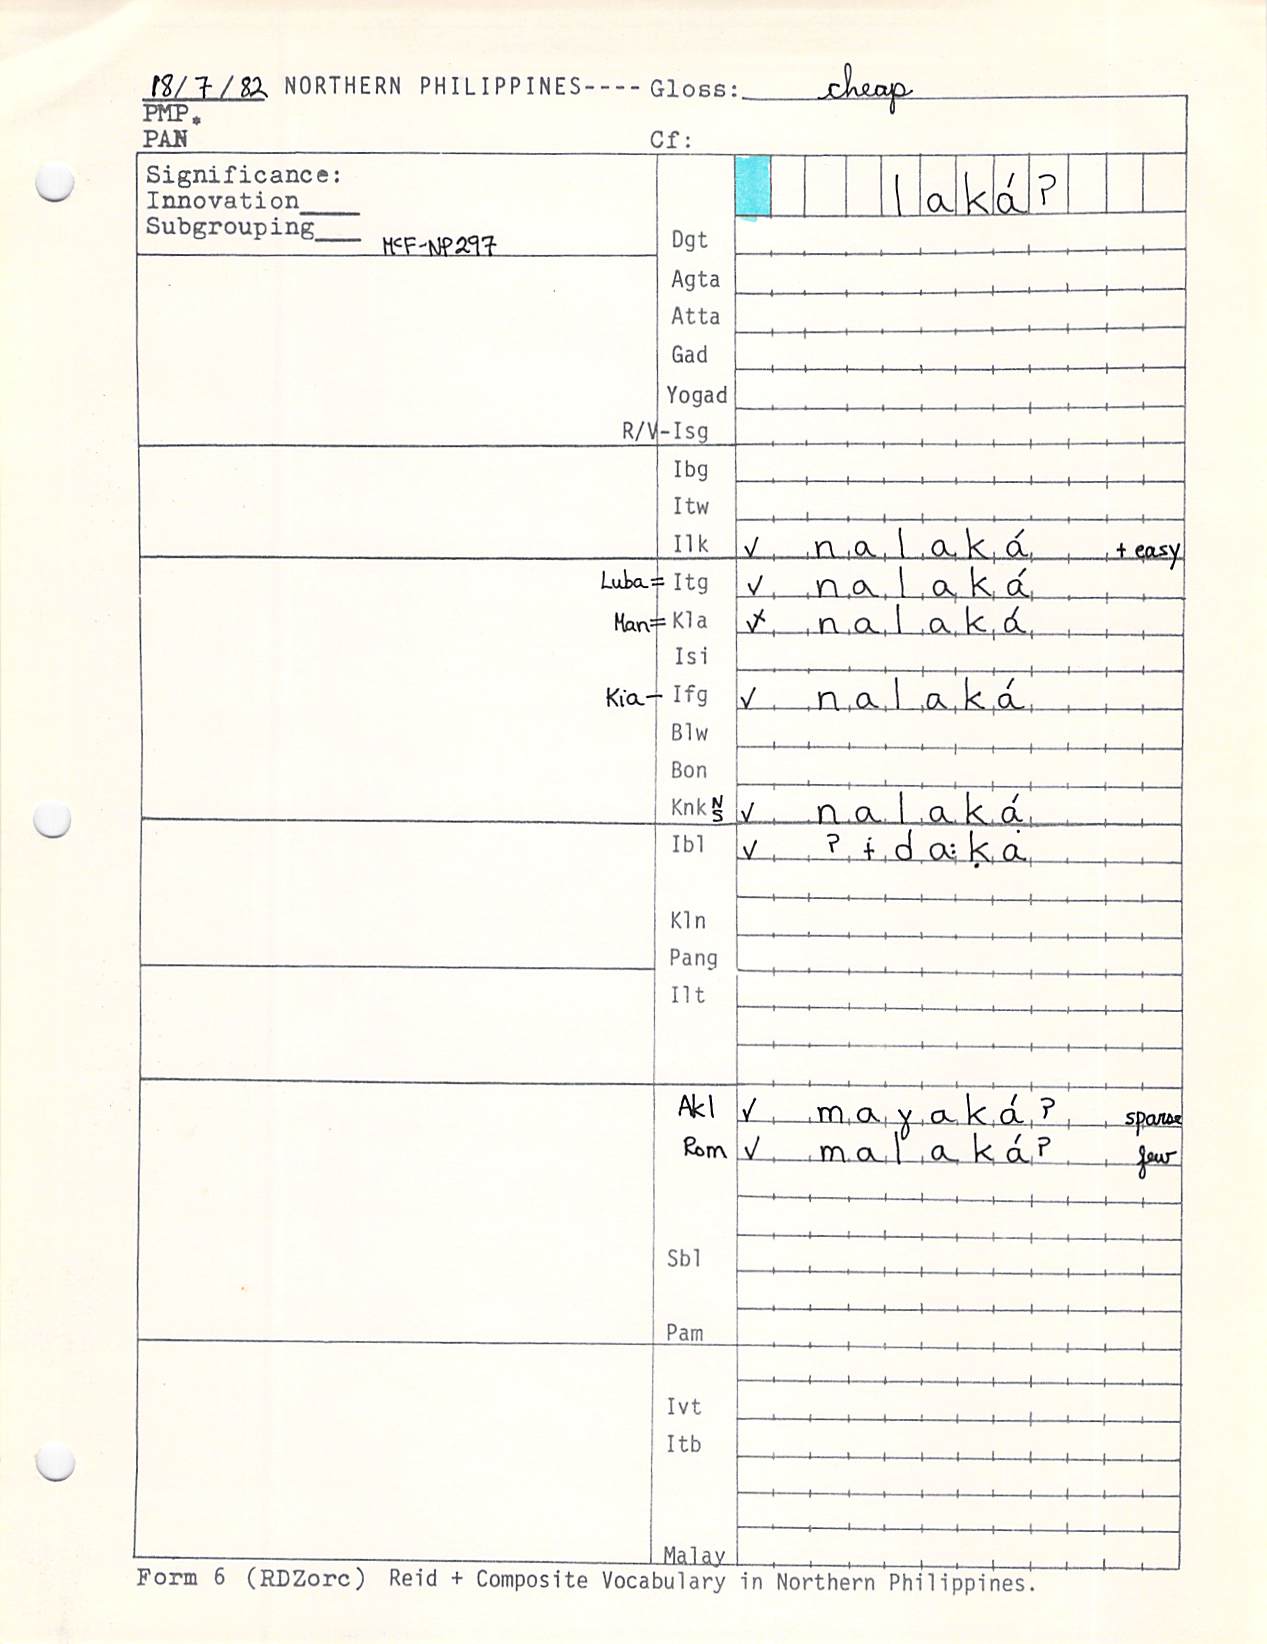 18/7/82 NORTHERN PHILIPPINES---- Gloss: cheap
PMP.
PAN Cf:
Significance:
Innovation____
Subgrouping___ McF-NP297
laká?
Dgt
Agta
Atta
Gad
Yogad
R/V-Isg
Ibg
Itw
Ilk ✓ nalaká + easy
Luba= Itg ✓ nalaká
Man= Kla ✓ nalaká
Isi
Kia- Ifg ✓ nalaká
Blw
Bon
Knk N S ✓ nalaká
Ibl ✓ ?ɨda:ḳa
Kln
Pang
Ilt
Akl ✓ mayaká? sparse
Rom ✓ malaká? few
Sbl
Pam
Ivt
Itb
Malay
Form 6 (RDZorc) Reid + Composite Vocabulary in Northern Philippines.